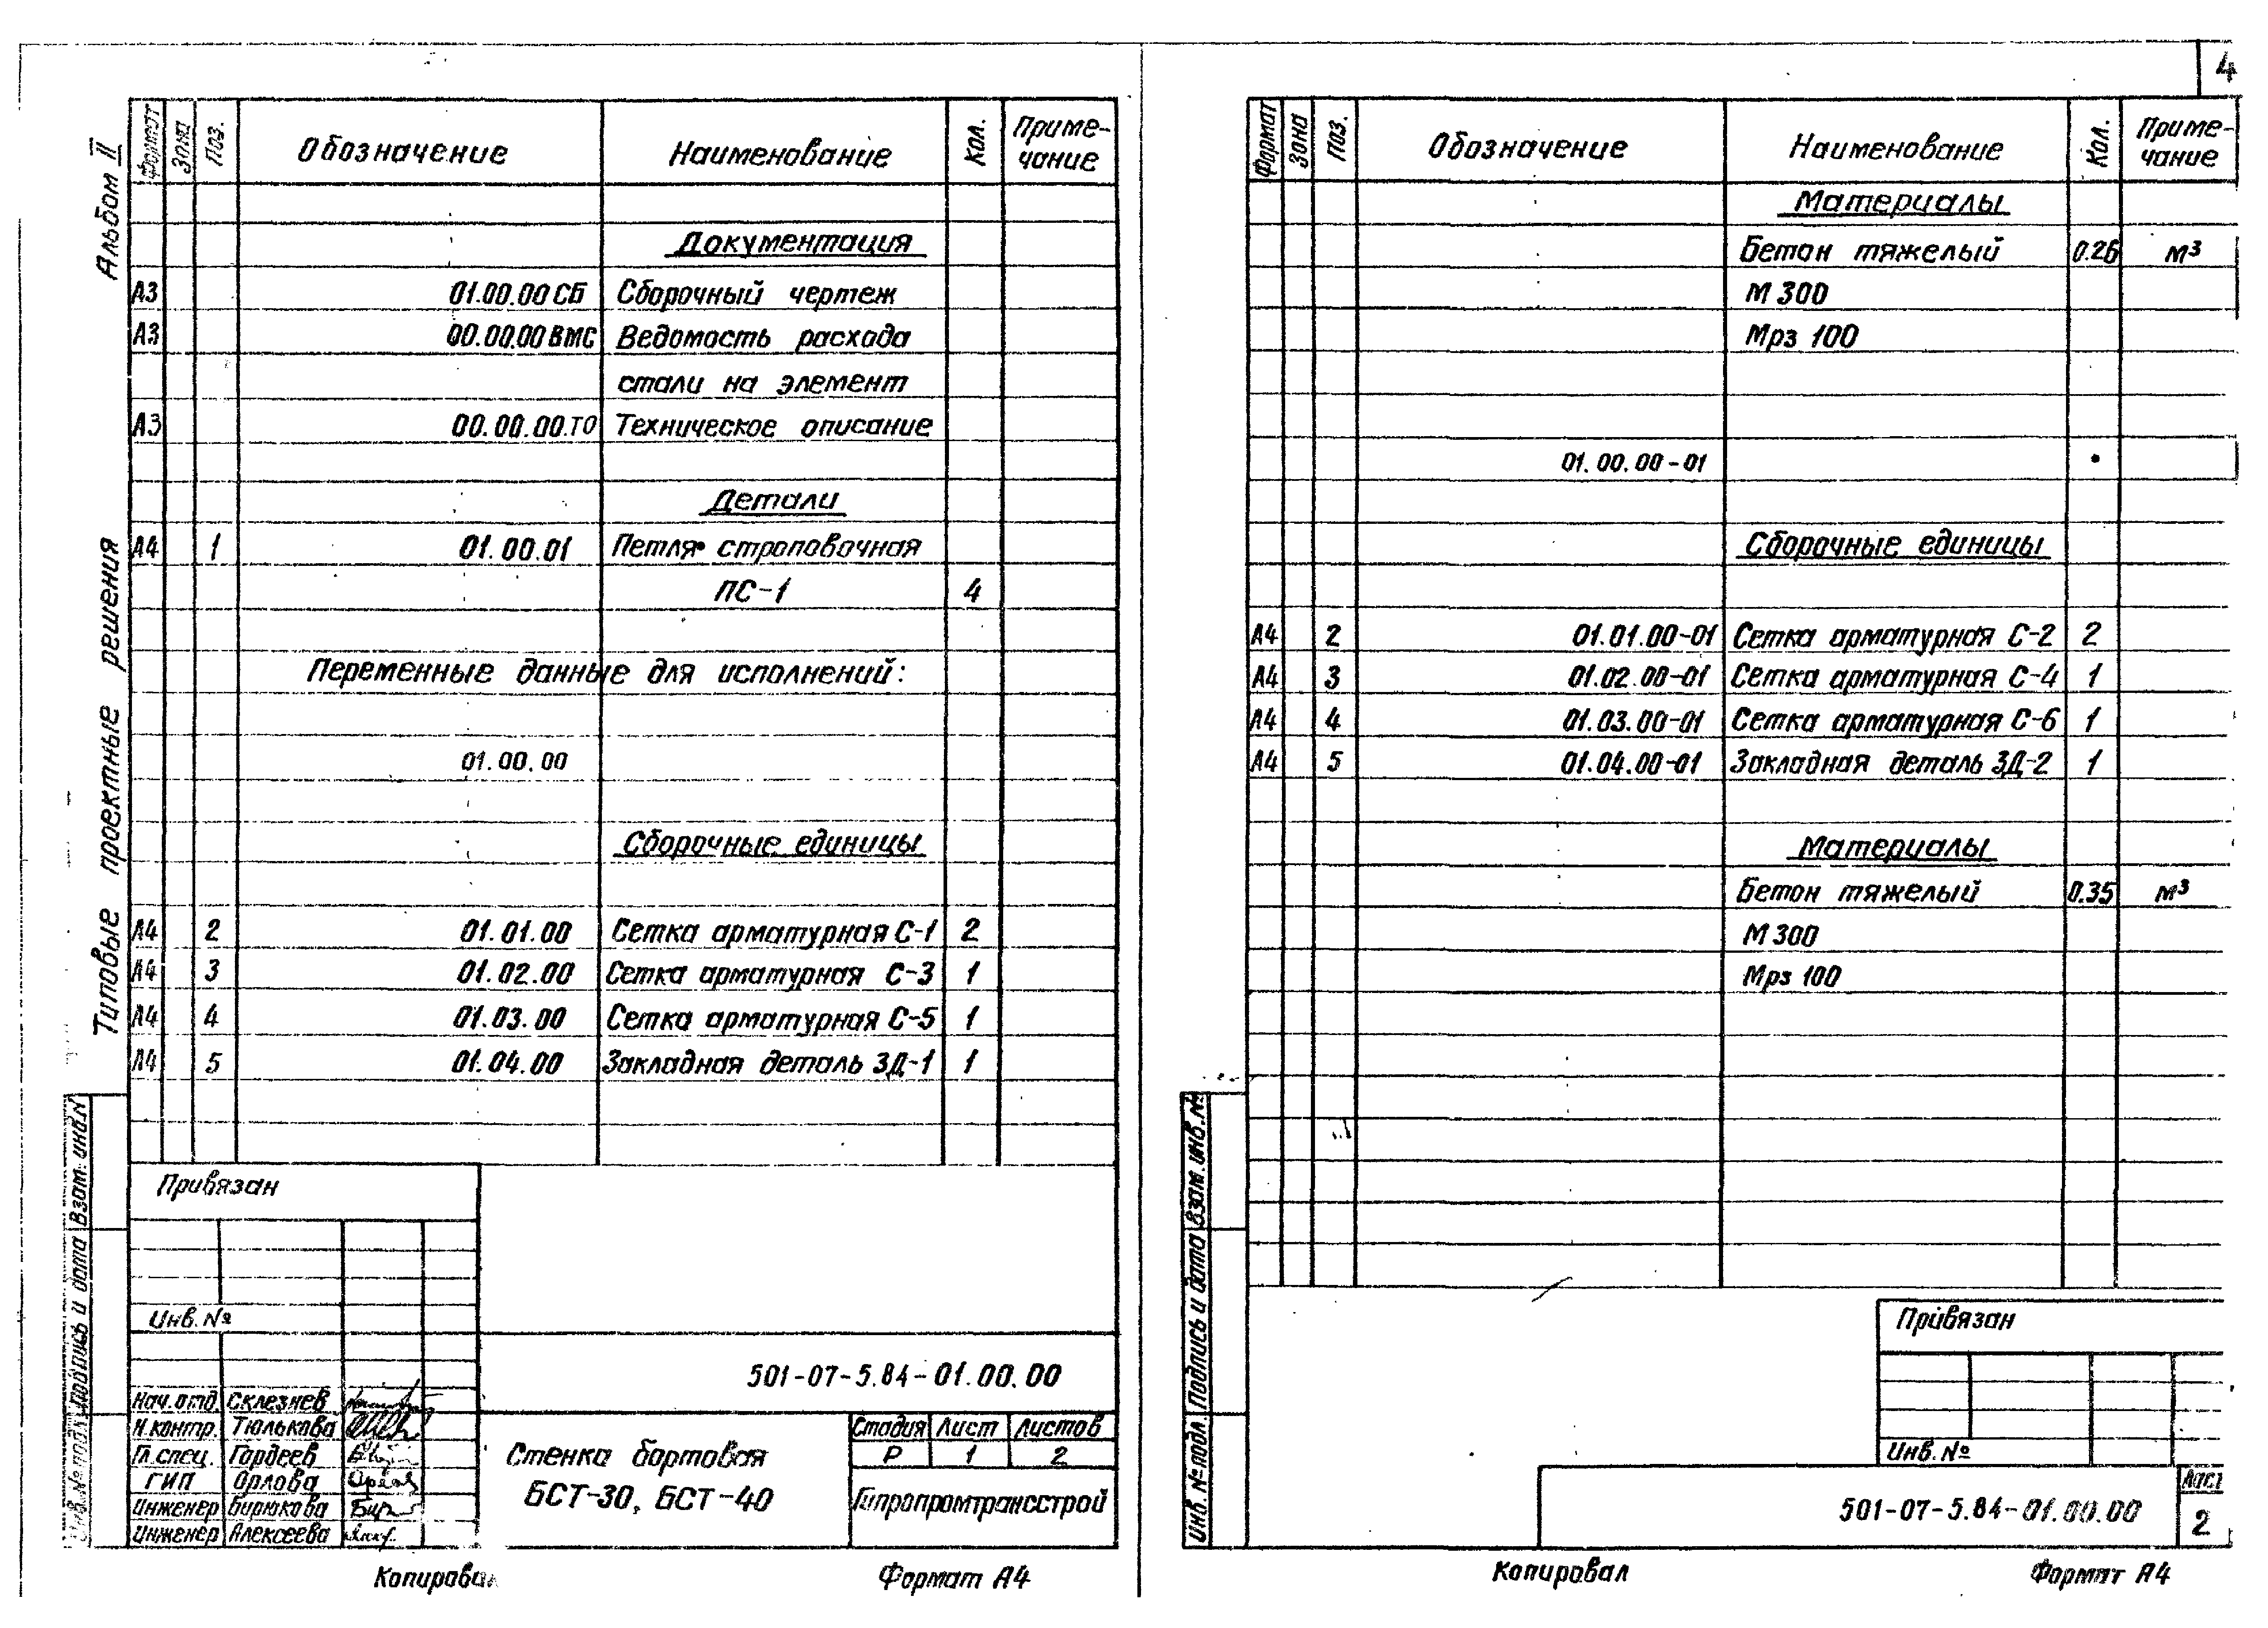 4
Альбом II
Типовые проектные решения
Формат Зона Поз. Обозначение Наименование Кол. Приме-
чание
Документация
А3 01.00.00 СБ Сборочный чертеж
А3 00.00.00 ВМС Ведомость расхода
стали на элемент
А3 00.00.00.ТО Техническое описание
Детали
А4 1 01.00.01 Петля строповочная
ПС-1 4
Переменные данные для исполнений:
01.00.00
Сборочные единицы
А4 2 01.01.00 Сетка арматурная С-1 2
А4 3 01.02.00 Сетка арматурная С-3 1
А4 4 01.03.00 Сетка арматурная С-5 1
А4 5 01.04.00 Закладная деталь ЗД-1 1
Взам. инв.№
Подпись и дата
Инв. № подл.
Привязан
Инв. №
501-07-5.84-01.00.00
Нач. отд. Склезнев
Н. контр. Тюлькова
Гл. спец. Гордеев
ГИП Орлова
Инженер Бирюкова
Инженер Алексеева
Стенка бортовая
БСТ-30, БСТ-40
Стадия Лист Листов
Р 1 2
Гипропромтрансстрой
Копировал Формат А4
Формат Зона Поз. Обозначение Наименование Кол. Приме-
чание
Материалы
Бетон тяжелый 0.26 м³
М 300
Мрз 100
01.00.00-01
Сборочные единицы
А4 2 01.01.00-01 Сетка арматурная С-2 2
А4 3 01.02.00-01 Сетка арматурная С-4 1
А4 4 01.03.00-01 Сетка арматурная С-6 1
А4 5 01.04.00-01 Закладная деталь ЗД-2 1
Материалы
Бетон тяжелый 0.35 м³
М 300
Мрз 100
Взам. инв. №
Подпись и дата
Инв. № подл.
Привязан
Инв. №
501-07-5.84-01.00.00
Лист
2
Копировал Формат А4